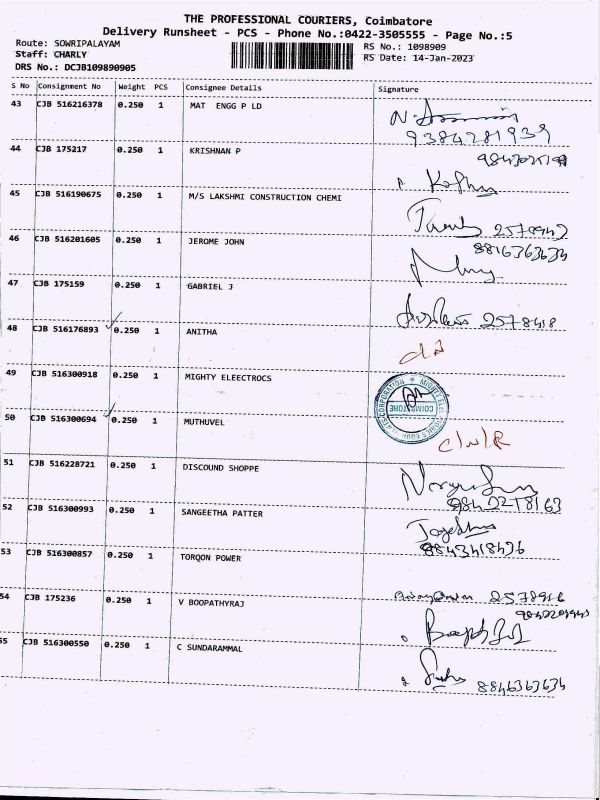 THE PROFESSIONAL COURIERS, Coimbatore
Delivery Runsheet - PCS - Phone No.:0422-3505555 - Page No.:5
Route: SOWRIPALAYAM
Staff: CHARLY
DRS No.: DCJB109890905
RS No.: 1098909
RS Date: 14-Jan-2023
S No Consignment No Weight PCS Consignee Details Signature
43 CJB 516216378 0.250 1 MAT ENGG P LD
9384281939
44 CJB 175217 0.250 1 KRISHNAN P
45 CJB 516190675 0.250 1 M/S LAKSHMI CONSTRUCTION CHEMI
2578949
46 CJB 516201605 0.250 1 JEROME JOHN
8816363634
47 CJB 175159 0.250 1 GABRIEL J
2578418
48 CJB 516176893 0.250 1 ANITHA
49 CJB 516300918 0.250 1 MIGHTY ELEECTROCS
COIMBATORE
50 CJB 516300694 0.250 1 MUTHUVEL
51 CJB 516228721 0.250 1 DISCOUND SHOPPE
52 CJB 516300993 0.250 1 SANGEETHA PATTER
8843418496
53 CJB 516300857 0.250 1 TORQON POWER
54 CJB 175236 0.250 1 V BOOPATHYRAJ
55 CJB 516300550 0.250 1 C SUNDARAMMAL
8846363634